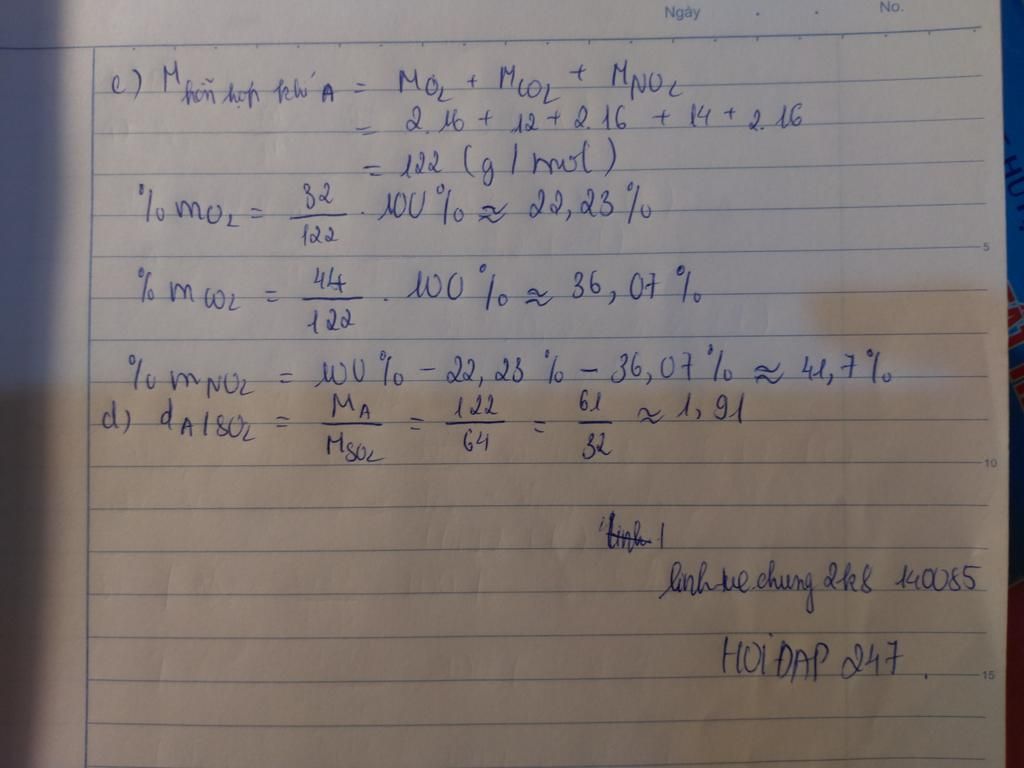 Ngày . . No.
c) M hỗn hợp khí A = MO2 + MCO2 + MNO2
= 2.16 + 12 + 2.16 + 14 + 2.16
= 122 (g/mol)
%mO2 = 32/122 . 100% ≈ 22,23%
5
%mCO2 = 44/122 . 100% ≈ 36,07%
%mNO2 = 100% - 22,23% - 36,07% ≈ 41,7%
d) dA/SO2 = MA/MSO2 = 122/64 = 61/32 ≈ 1,91
10
chung 2k8 140085
HOIĐAP 247.
15